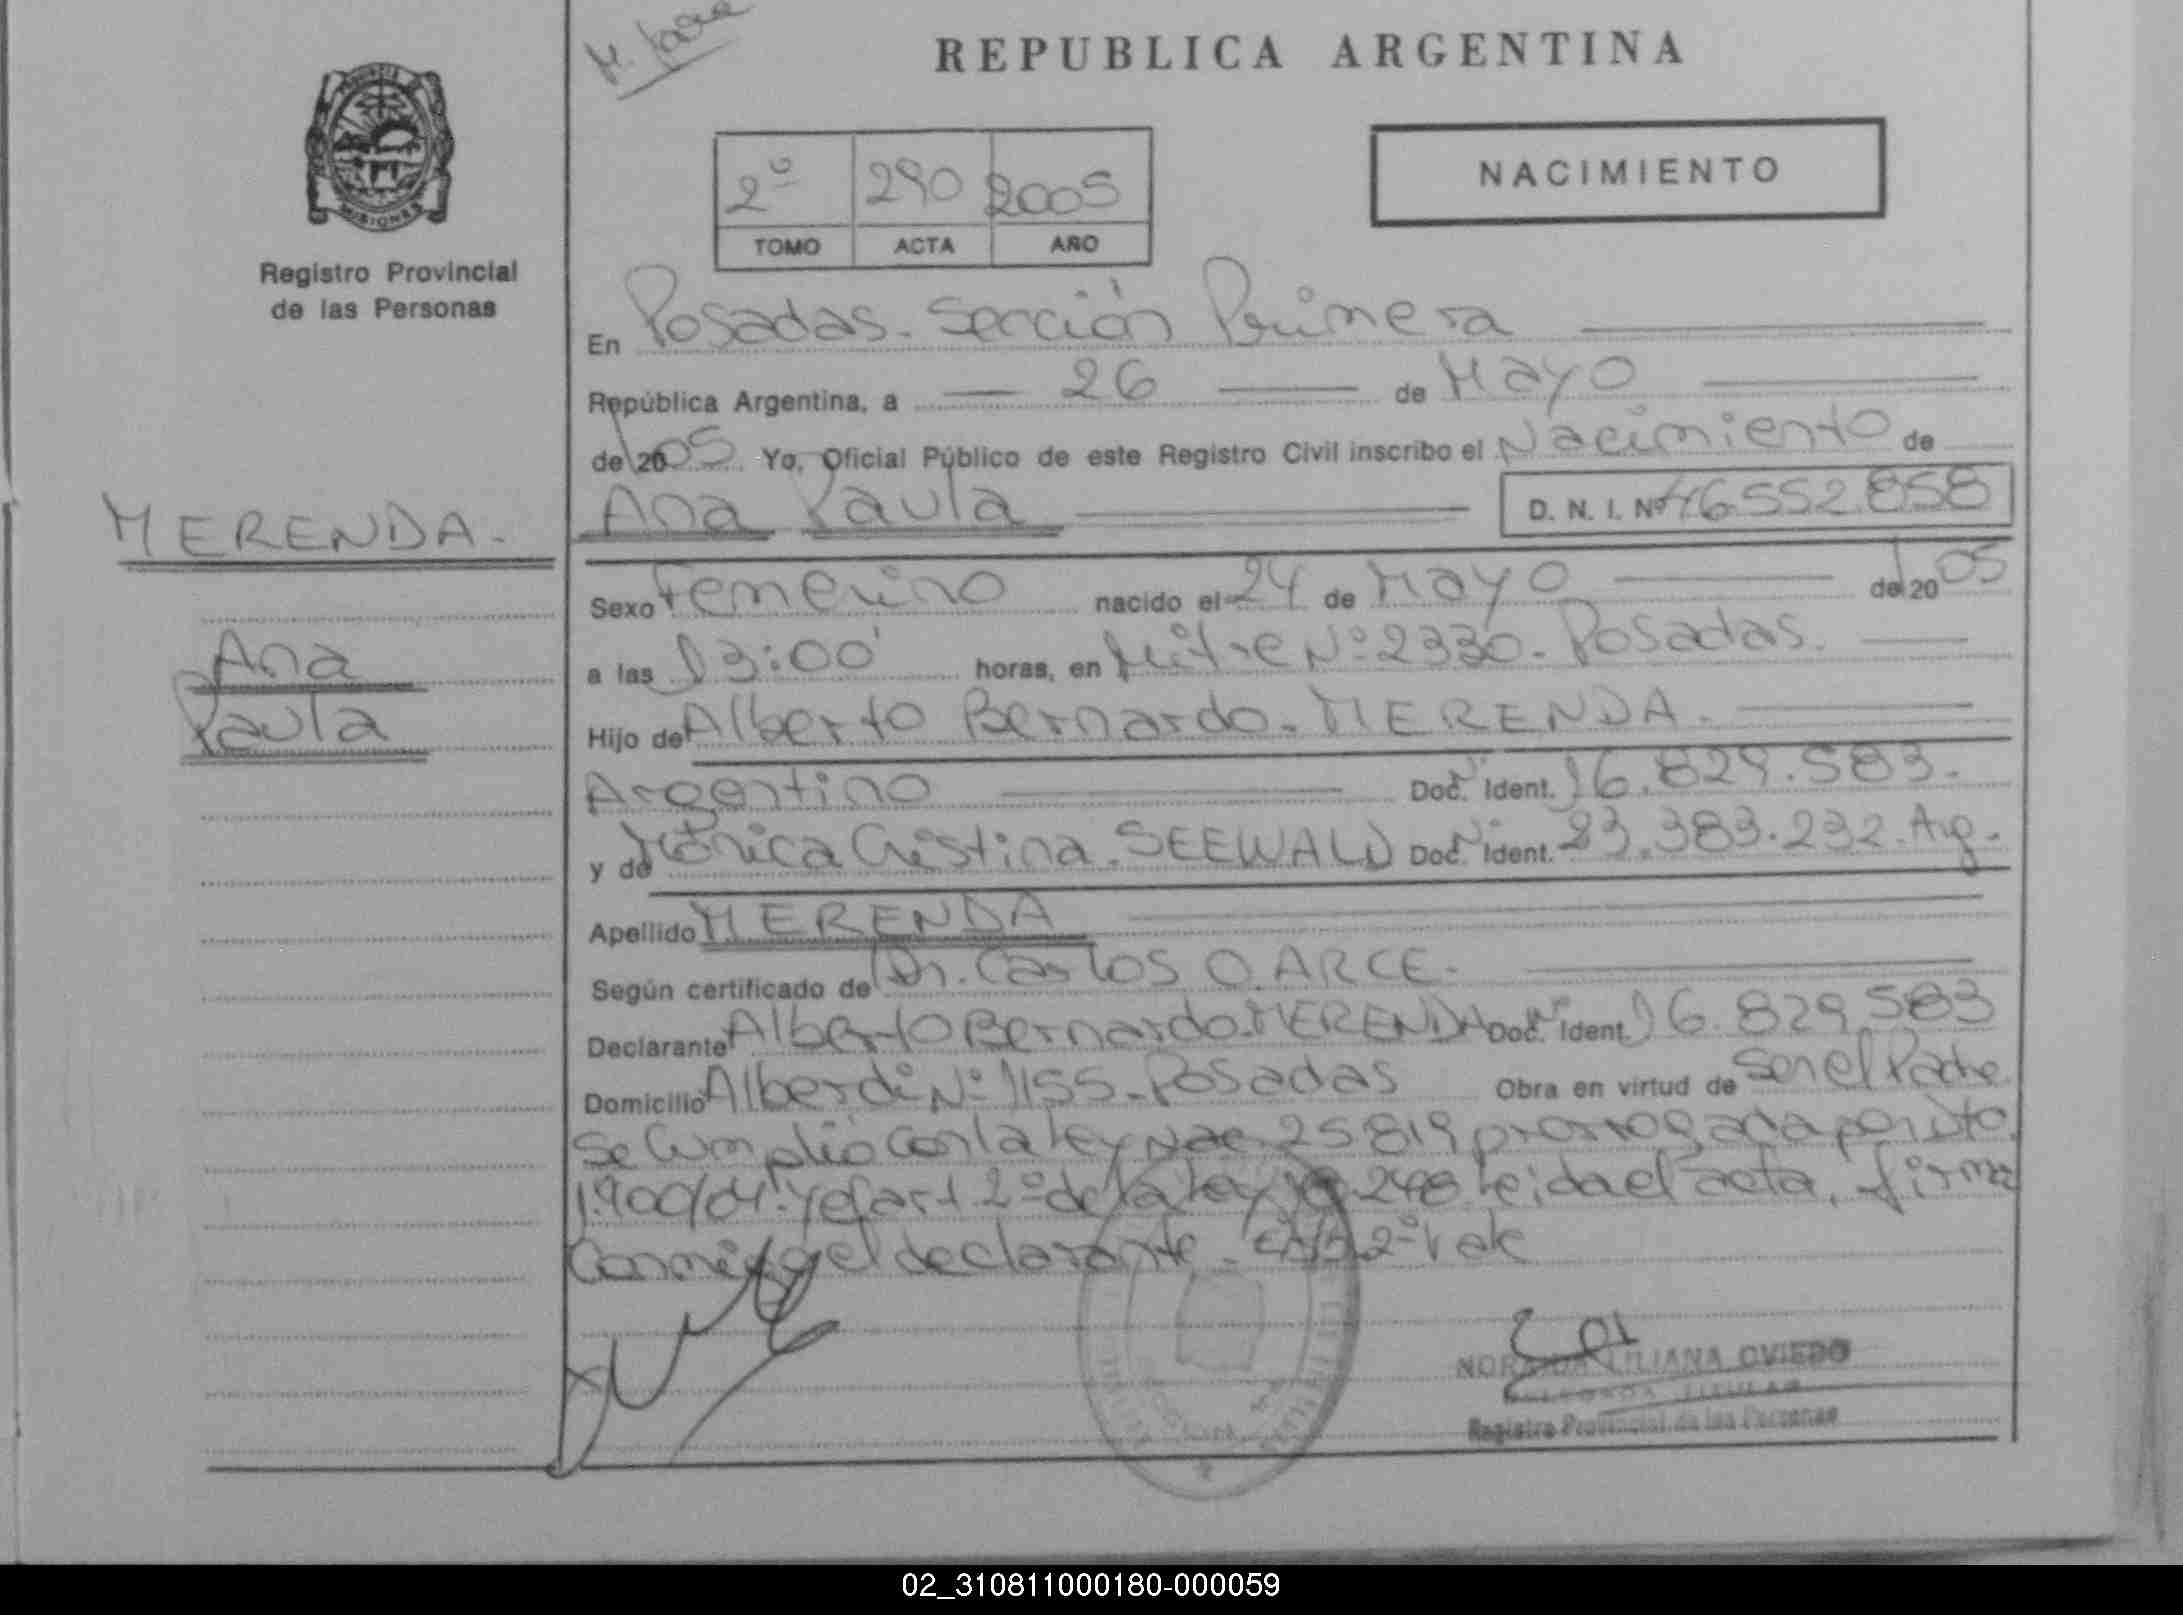 REPUBLICA ARGENTINA
MISIONES
Registro Provincial
de las Personas
2º 290 2005
TOMO ACTA AÑO
NACIMIENTO
En Posadas. Sección Primera
República Argentina, a 26 de Mayo
de 2005 Yo, Oficial Público de este Registro Civil inscribo el Nacimiento de
Ana Paula D. N. I. Nº 46.552.858
MERENDA.
Ana
Paula
Sexo Femenino nacido el 24 de Mayo de 2005
a las 13:00 horas, en Mitre Nº 2330. Posadas.
Hijo de Alberto Bernardo. MERENDA.
Argentino Doc. Ident. 16.829.583.
y de Mónica Cristina. SEEWALD Doc. Ident. 23.383.232. Arg.
Apellido MERENDA
Según certificado de Dr. Carlos O. ARCE.
Declarante Alberto Bernardo. MERENDA Doc. Ident. 16.829.583
Domicilio Alberdi Nº 1155. Posadas Obra en virtud de ser el Padre.
Se cumplió con la ley Nac. 25.819 prorrogada por Dto.
1.900/04. y el art. 2º de la ley 248 leida el acta, firma
Conmigo el declarante. 2º Vale
LILIANA OVIEDO
Registro Provincial de las Personas
02_310811000180-000059